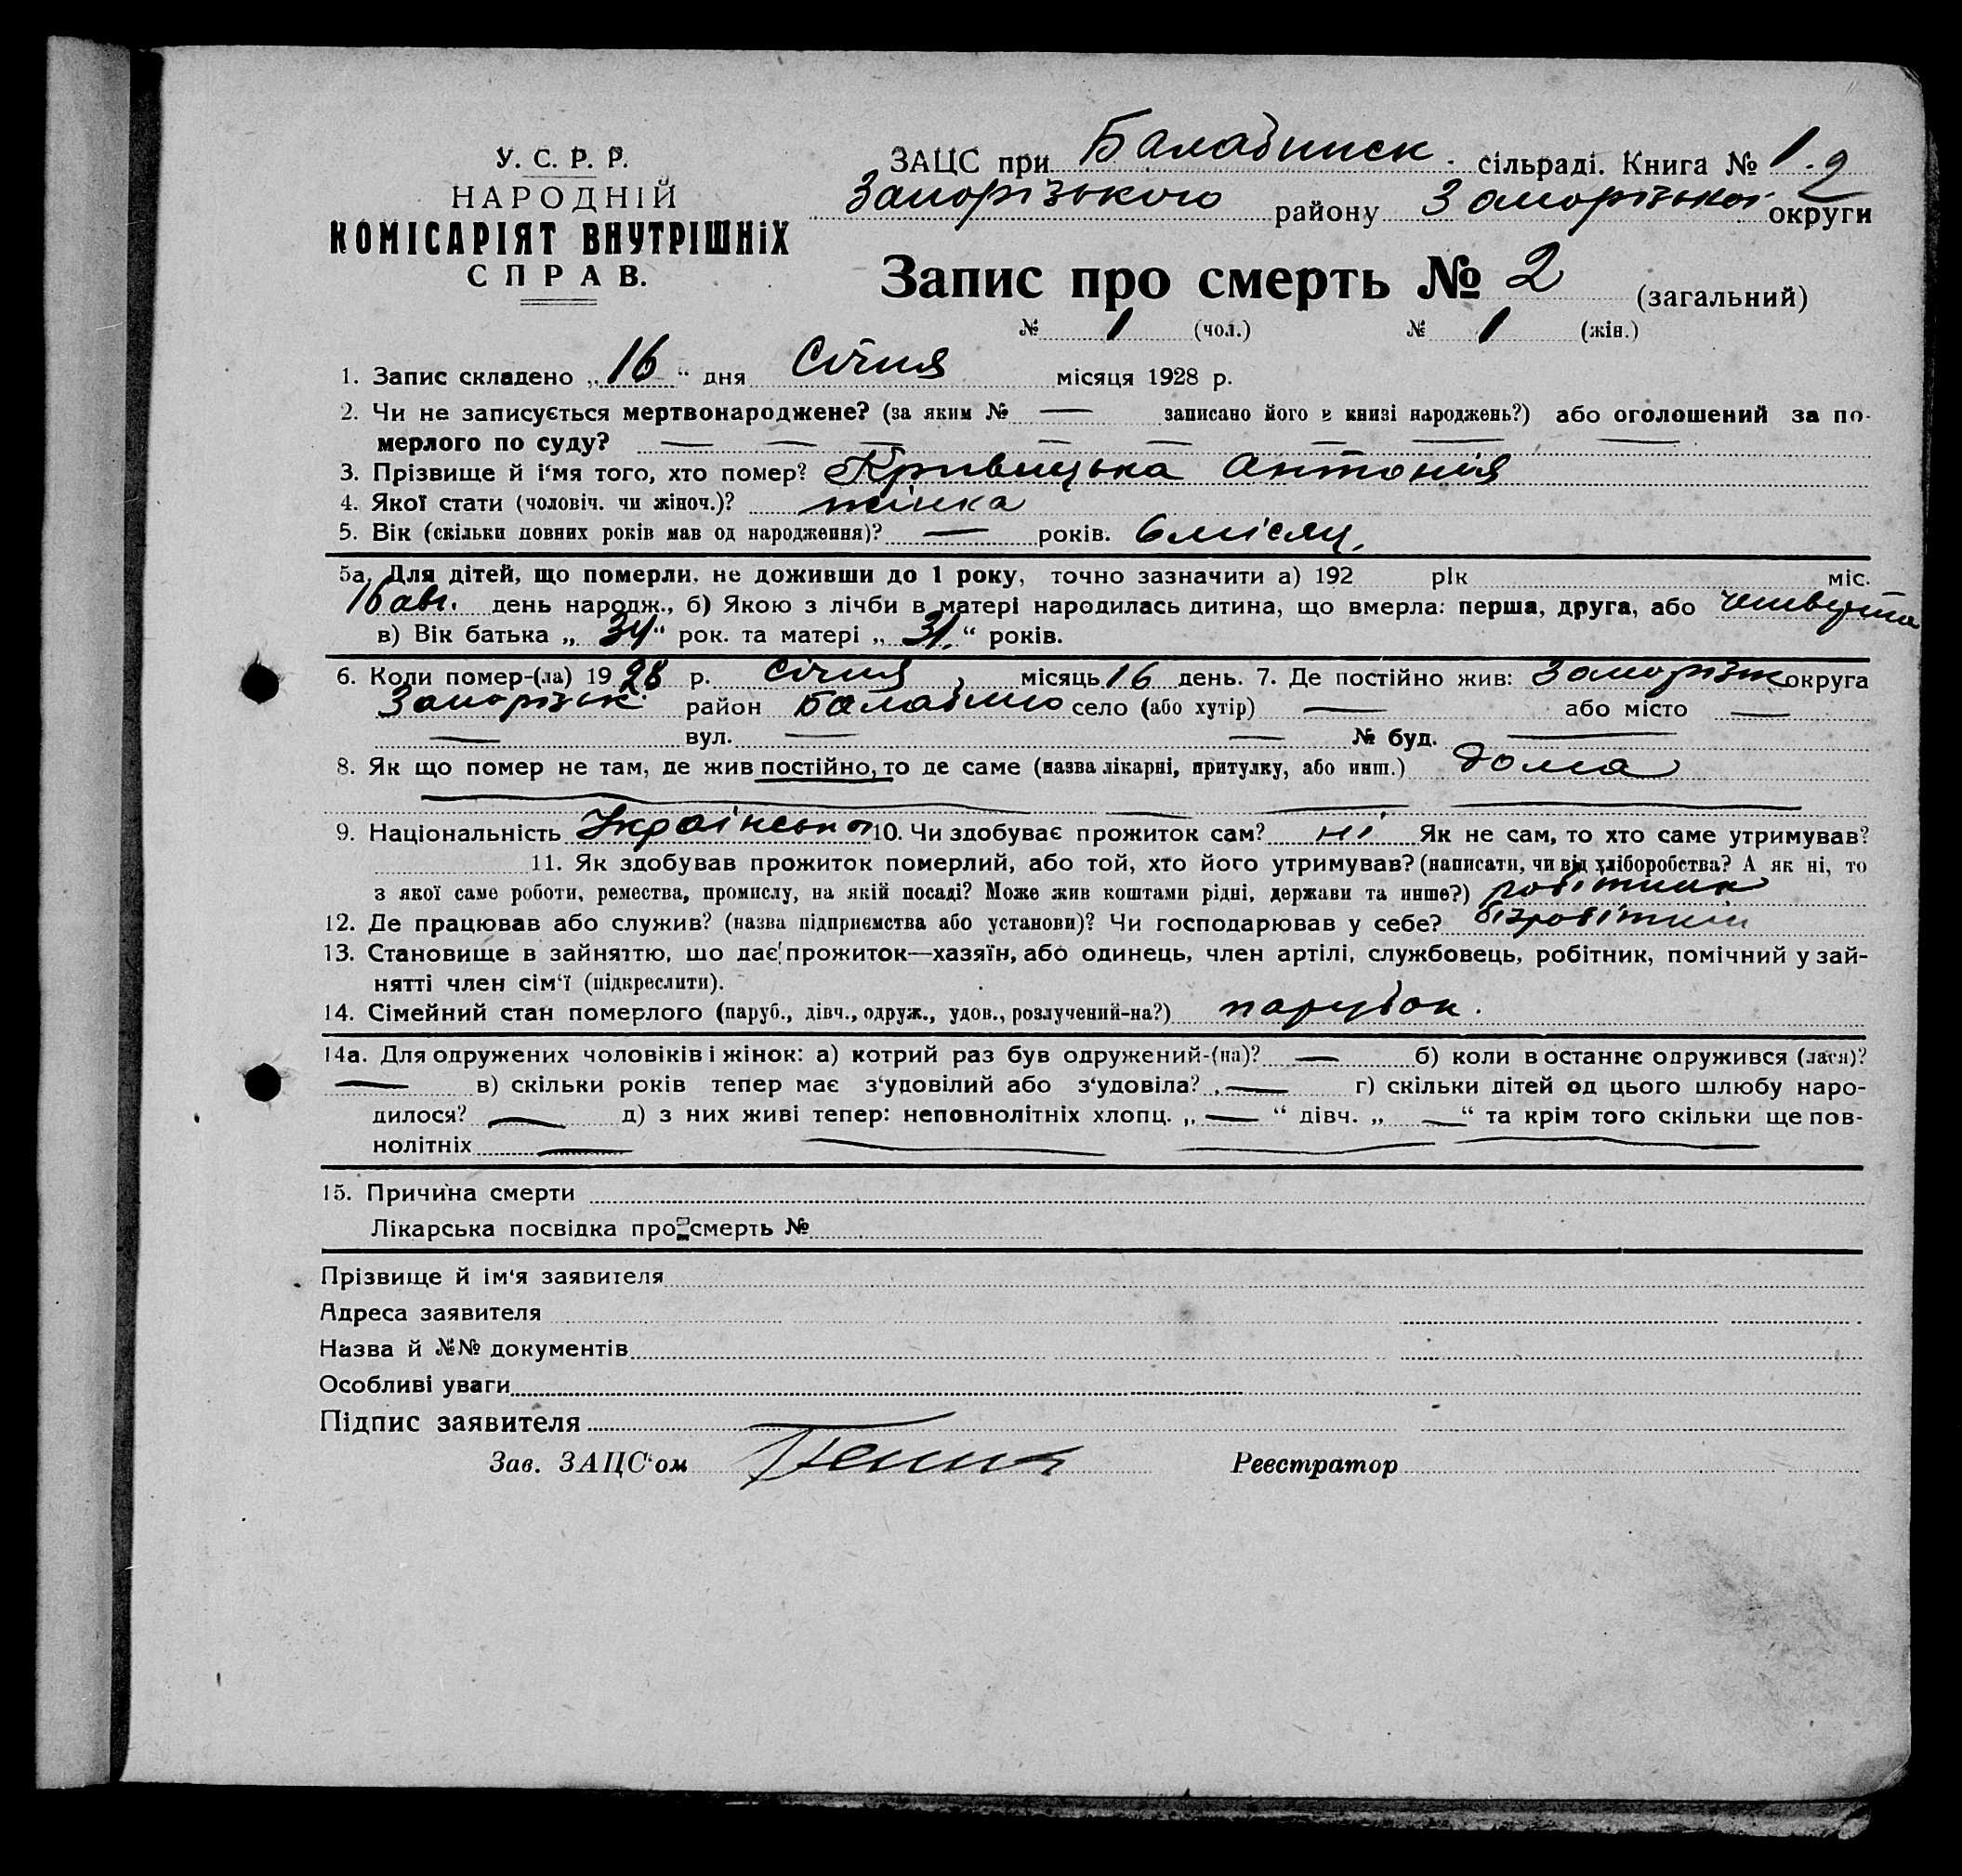 У. С. Р. Р.
НАРОДНІЙ
КОМІСАРІЯТ ВНУТРІШНІХ
СПРАВ.
ЗАЦС при Балабинск. сільраді. Книга № 1.
2
Запорізького району Запорізької округи
Запис про смерть № 2 (загальний)
№ 1 (чол.) № 1 (жін.)
1. Запис складено „ 16 “ дня Січня місяця 1928 р.
2. Чи не записується мертвонароджене? (за яким № — записано його в книзі народжень?) або оголошений за по-
мерлого по суду? — — — — — — — —
3. Прізвище й і'мя того, хто помер? Кривицька Антонія
4. Якої стати (чоловіч. чи жіноч.)? жінка
5. Вік (скільки повних років мав од народження)? — років. 6 місяц.
5а. Для дітей, що померли, не доживши до 1 року, точно зазначити а) 192 рік міс.
16 авг. день народж., б) Якою з лічби в матері народилась дитина, що вмерла: перша, друга, або четверта
в) Вік батька „ 34 “ рок. та матері „ 31. “ років.
6. Коли помер-(ла) 1928 р. Січня місяць 16 день. 7. Де постійно жив: Запорізьк округа
Запорізьк. район Балабино село (або хутір) — або місто —
— вул. — — № буд. —
8. Як що помер не там, де жив постійно, то де саме (назва лікарні, притулку, або инш.) дома
9. Національність Українська 10. Чи здобуває прожиток сам? ні Як не сам, то хто саме утримував?
11. Як здобував прожиток померлий, або той, хто його утримував? (написати, чи від хліборобства? А як ні, то
з якої саме роботи, ремества, промислу, на якій посаді? Може жив коштами рідні, держави та инше?) робітник
12. Де працював або служив? (назва підприємства або установи)? Чи господарював у себе?
13. Становище в зайняттю, що дає прожиток—хазяїн, або одинець, член артілі, службовець, робітник, помічний у зай-
нятті член сім'ї (підкреслити).
14. Сімейний стан померлого (паруб., дівч., одруж., удов., розлучений-на?) парубок.
14а. Для одружених чоловіків і жінок: а) котрий раз був одружений-(на)? — б) коли в останнє одружився (лася)?
— в) скільки років тепер має з'удовілий або з'удовіла? — г) скільки дітей од цього шлюбу наро-
дилося? — д) з них живі тепер: неповнолітніх хлопц. „ — “ дівч. „ — “ та крім того скільки ще пов-
нолітніх — — — —
15. Причина смерти
Лікарська посвідка про смерть №
Прізвище й ім'я заявителя
Адреса заявителя
Назва й №№ документів
Особливі уваги
Підпис заявителя
Зав. ЗАЦС'ом Реєстратор